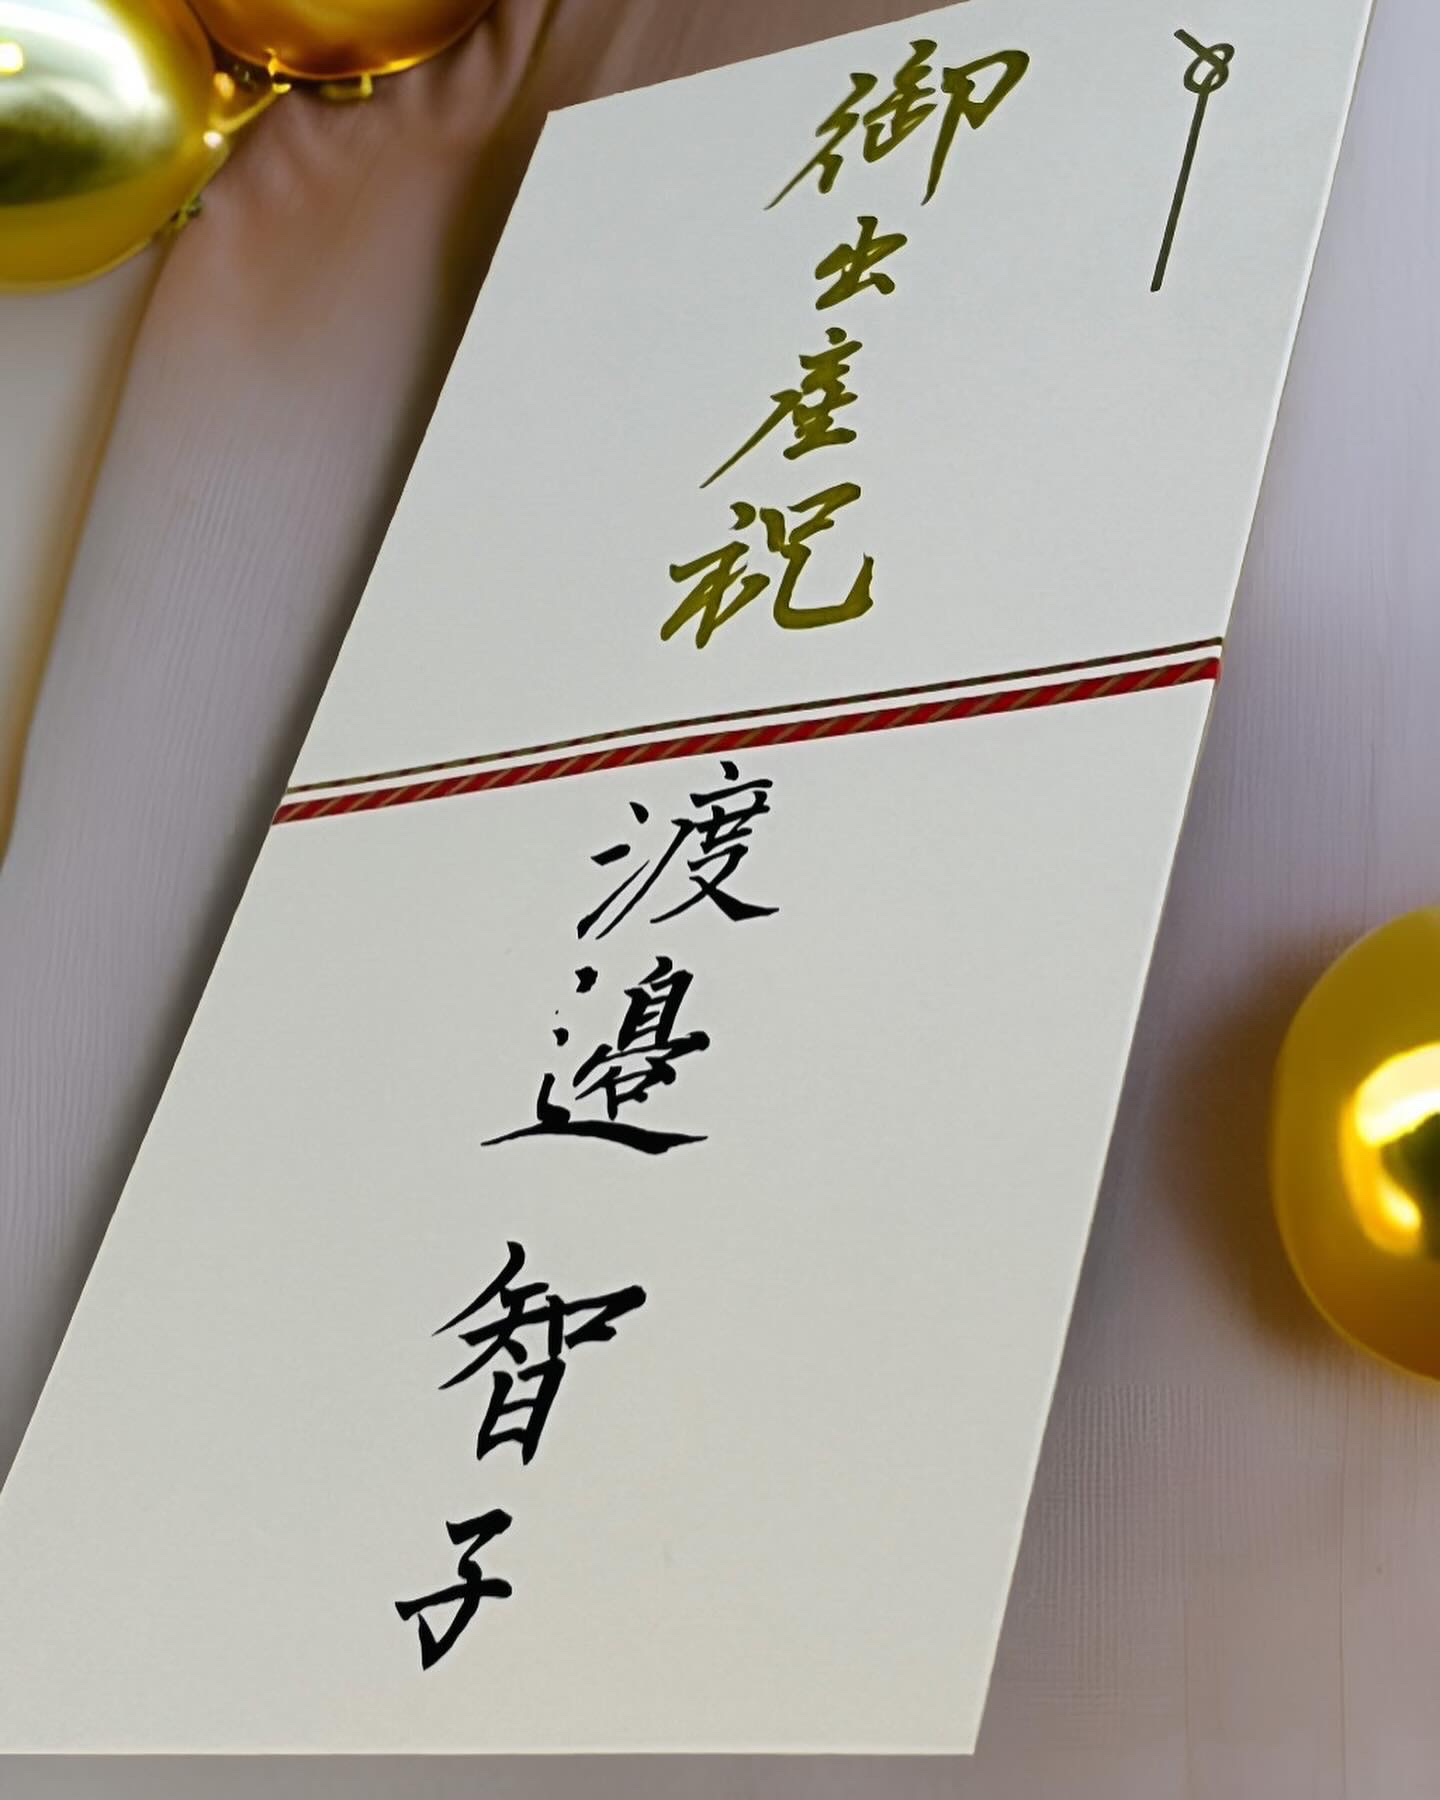 御出産祝
渡邉 智子